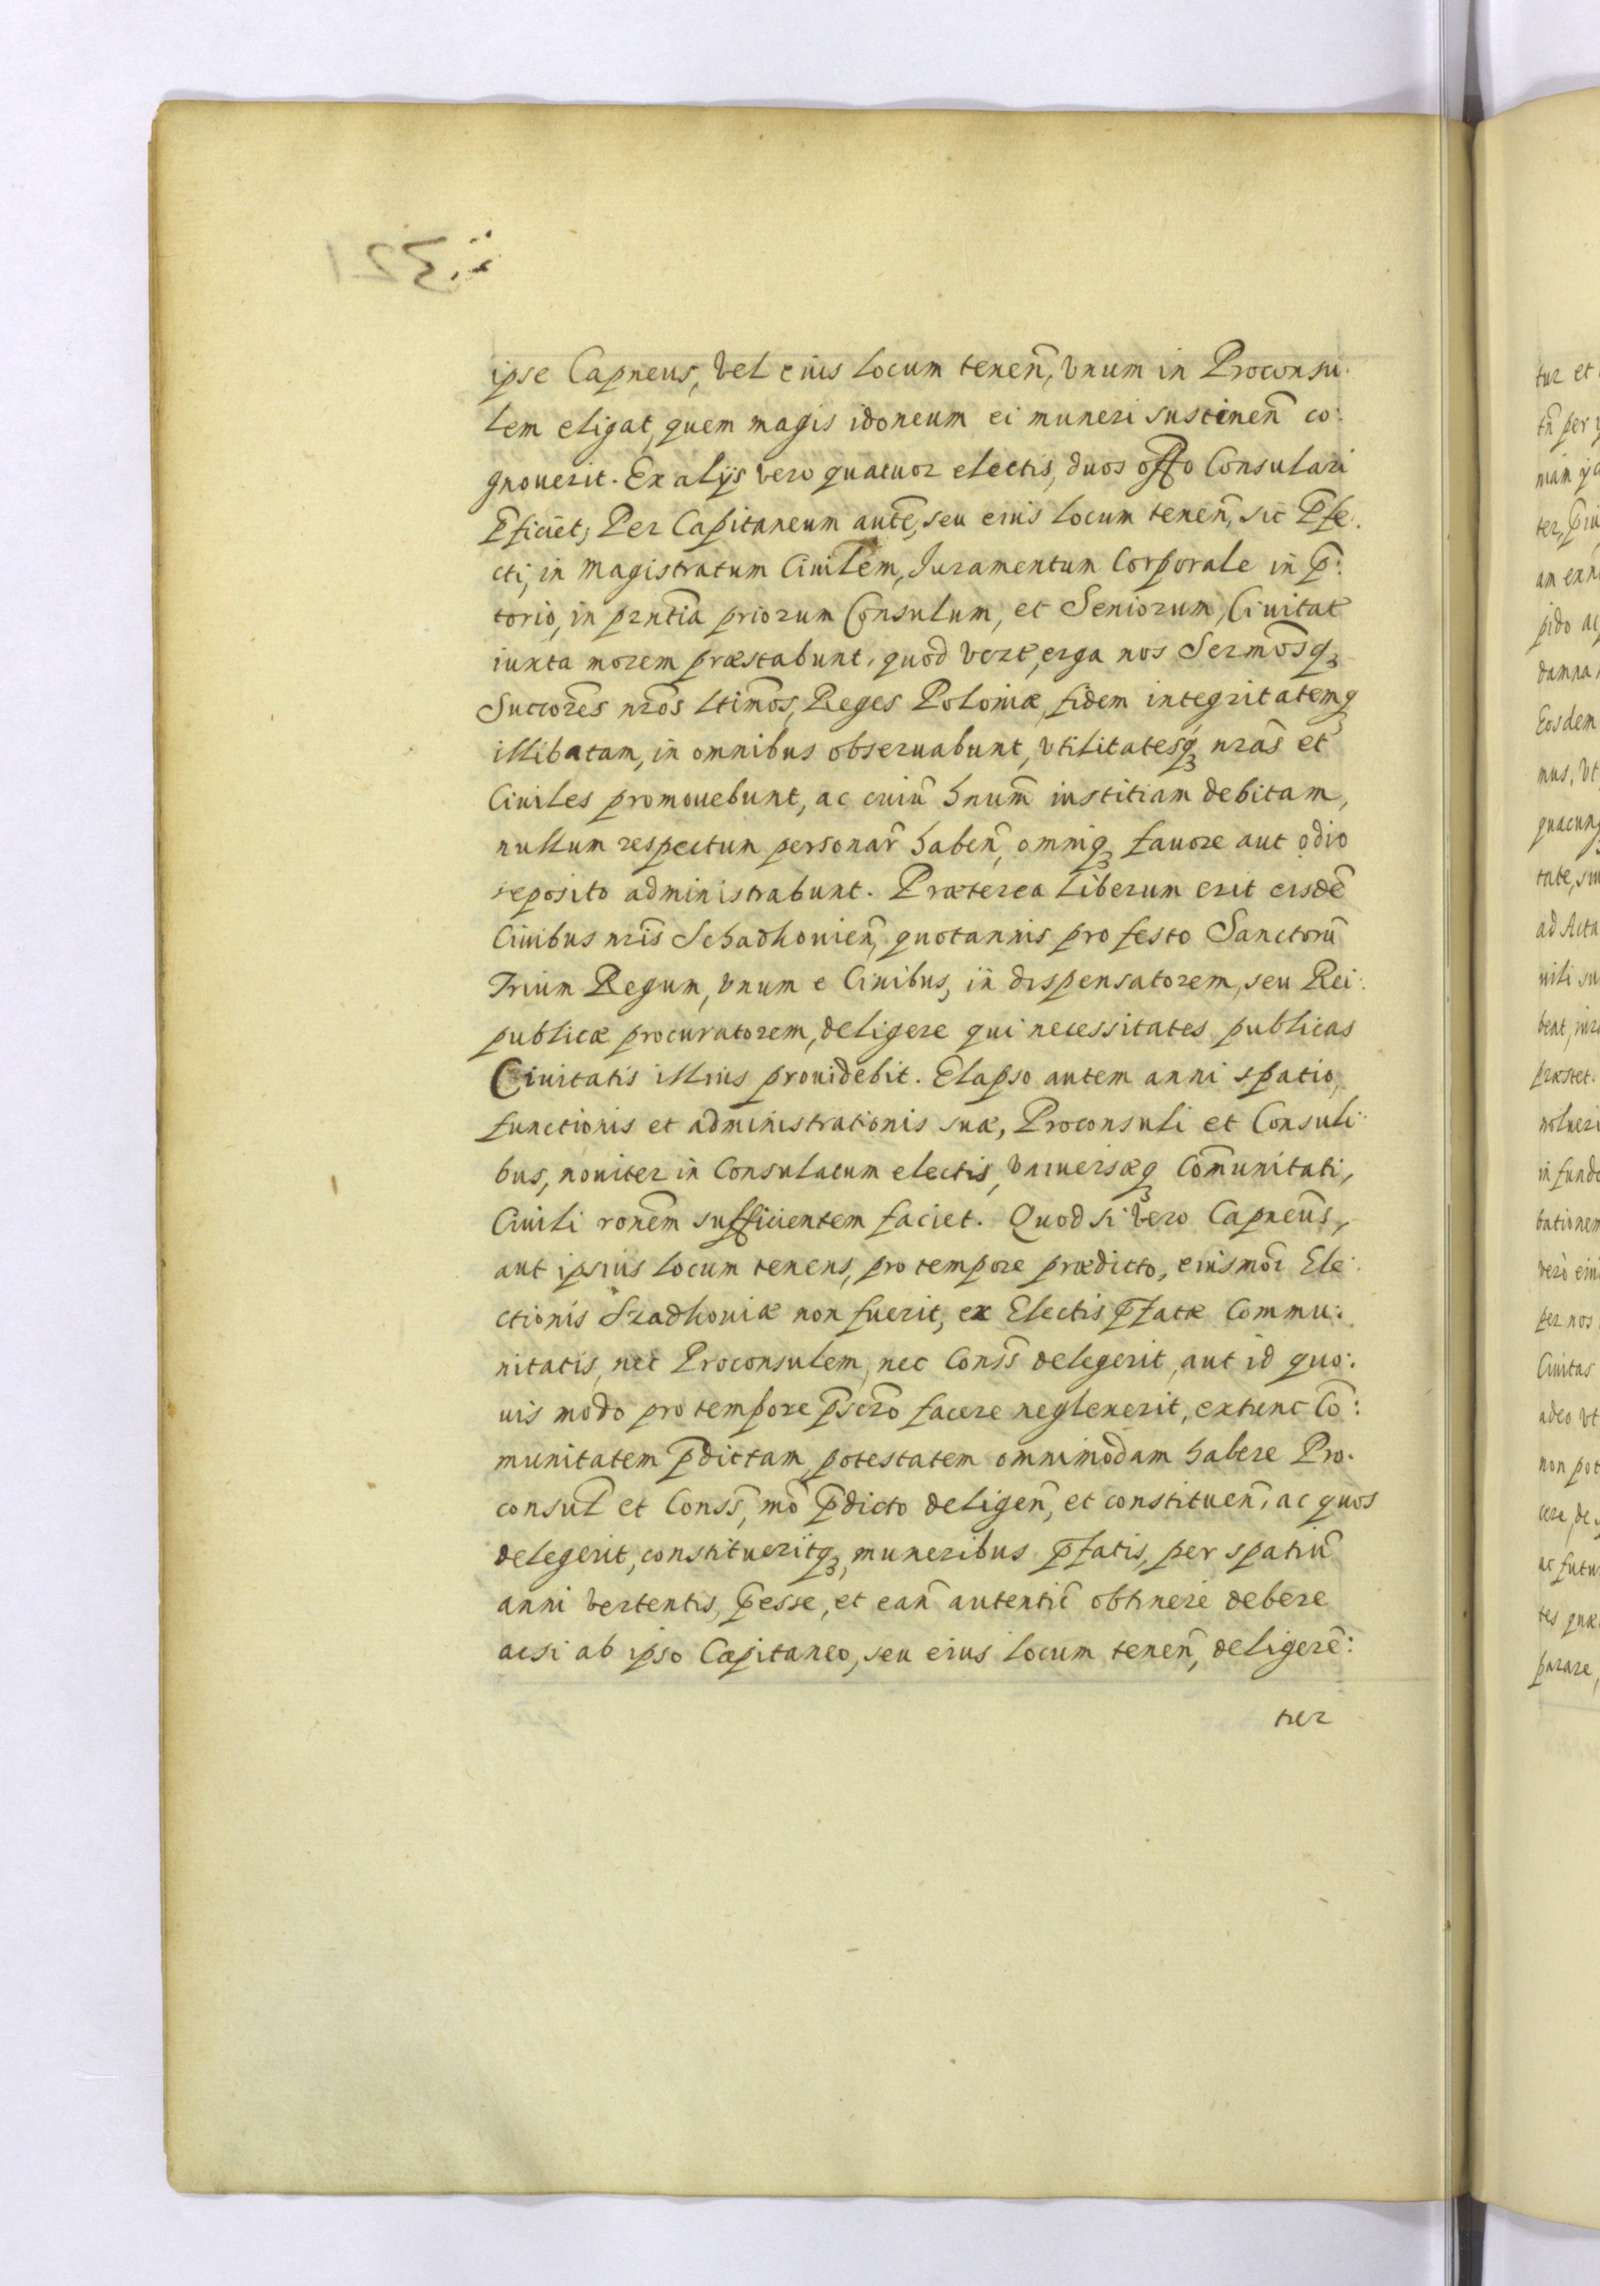 ipse Capneus, vel eius locum tenen̄, vnum in Proconsu:
lem eligat, quem magis idoneum ei muneri sustinen̄ co:
gnouerit. Ex alijs vero quatuor electis, duos offo Consulari
p̄ficiet; Per Capitaneum autē, seu eius locum tenen̄, sic P̄fe:
cti, in Magistratum Ciuilem, Iuramentum Corporale in p̄:
torio, in prntīa priorum Consulum, et Seniorum, Ciuitat̄
iuxta morem præstabunt, quod vere, erga nos Sermōsq3
Succorēs nrōs ltimōs, Reges Poloniæ, fidem integritatemq3
illibatam, in omnibus obseruabunt, vtilitatesq3 nrās et
Ciuiles promouebunt, ac ciuiū hnum̄ iustitiam debitam,
nullum respectum personar̄ haben̄, omniq3 fauore aut odio
seposito administrabunt. Præterea liberum erit eisdē
Ciuibus nrīs Schadkouien̄, quotannis pro festo Sanctorū
Trium Regum, vnum e Ciuibus, in dispensatorem, seu Rei:
publicæ procuratorem, deligere qui necessitates publicas
Ciuitatis illius prouidebit. Elapso autem anni spatio,
functionis et administrationis suæ, Proconsuli et Consuli:
bus, nouiter in Consulatum electis, vniuersæq3 Com̄unitati,
Ciuili ronēm sufficientem faciet. Quod si vero Capneūs,
aut ipsius locum tenens, pro tempore prædicto, eiusmōi Ele:
ctionis Szadkouiæ non fuerit, ex Electis p̄fatæ Commu:
nitatis, nec Proconsulem, nec Conss̄ delegerit, aut id quo:
uis modo pro tempore p̄scrō facere neglexerit, extunc Cō:
munitatem p̄dictam, potestatem omnimodam habere Pro:
consul̄ et Conss̄, mō p̄dicto deligen̄, et constituen̄, ac quos
delegerit, constitueritq3, muneribus p̄fatis, per spatiū
anni vertentis, p̄esse, et ean̄ autentic̄ obtinere debere
acsi ab ipso Capitaneo, seu eius locum tenen̄, deligerē:
tur